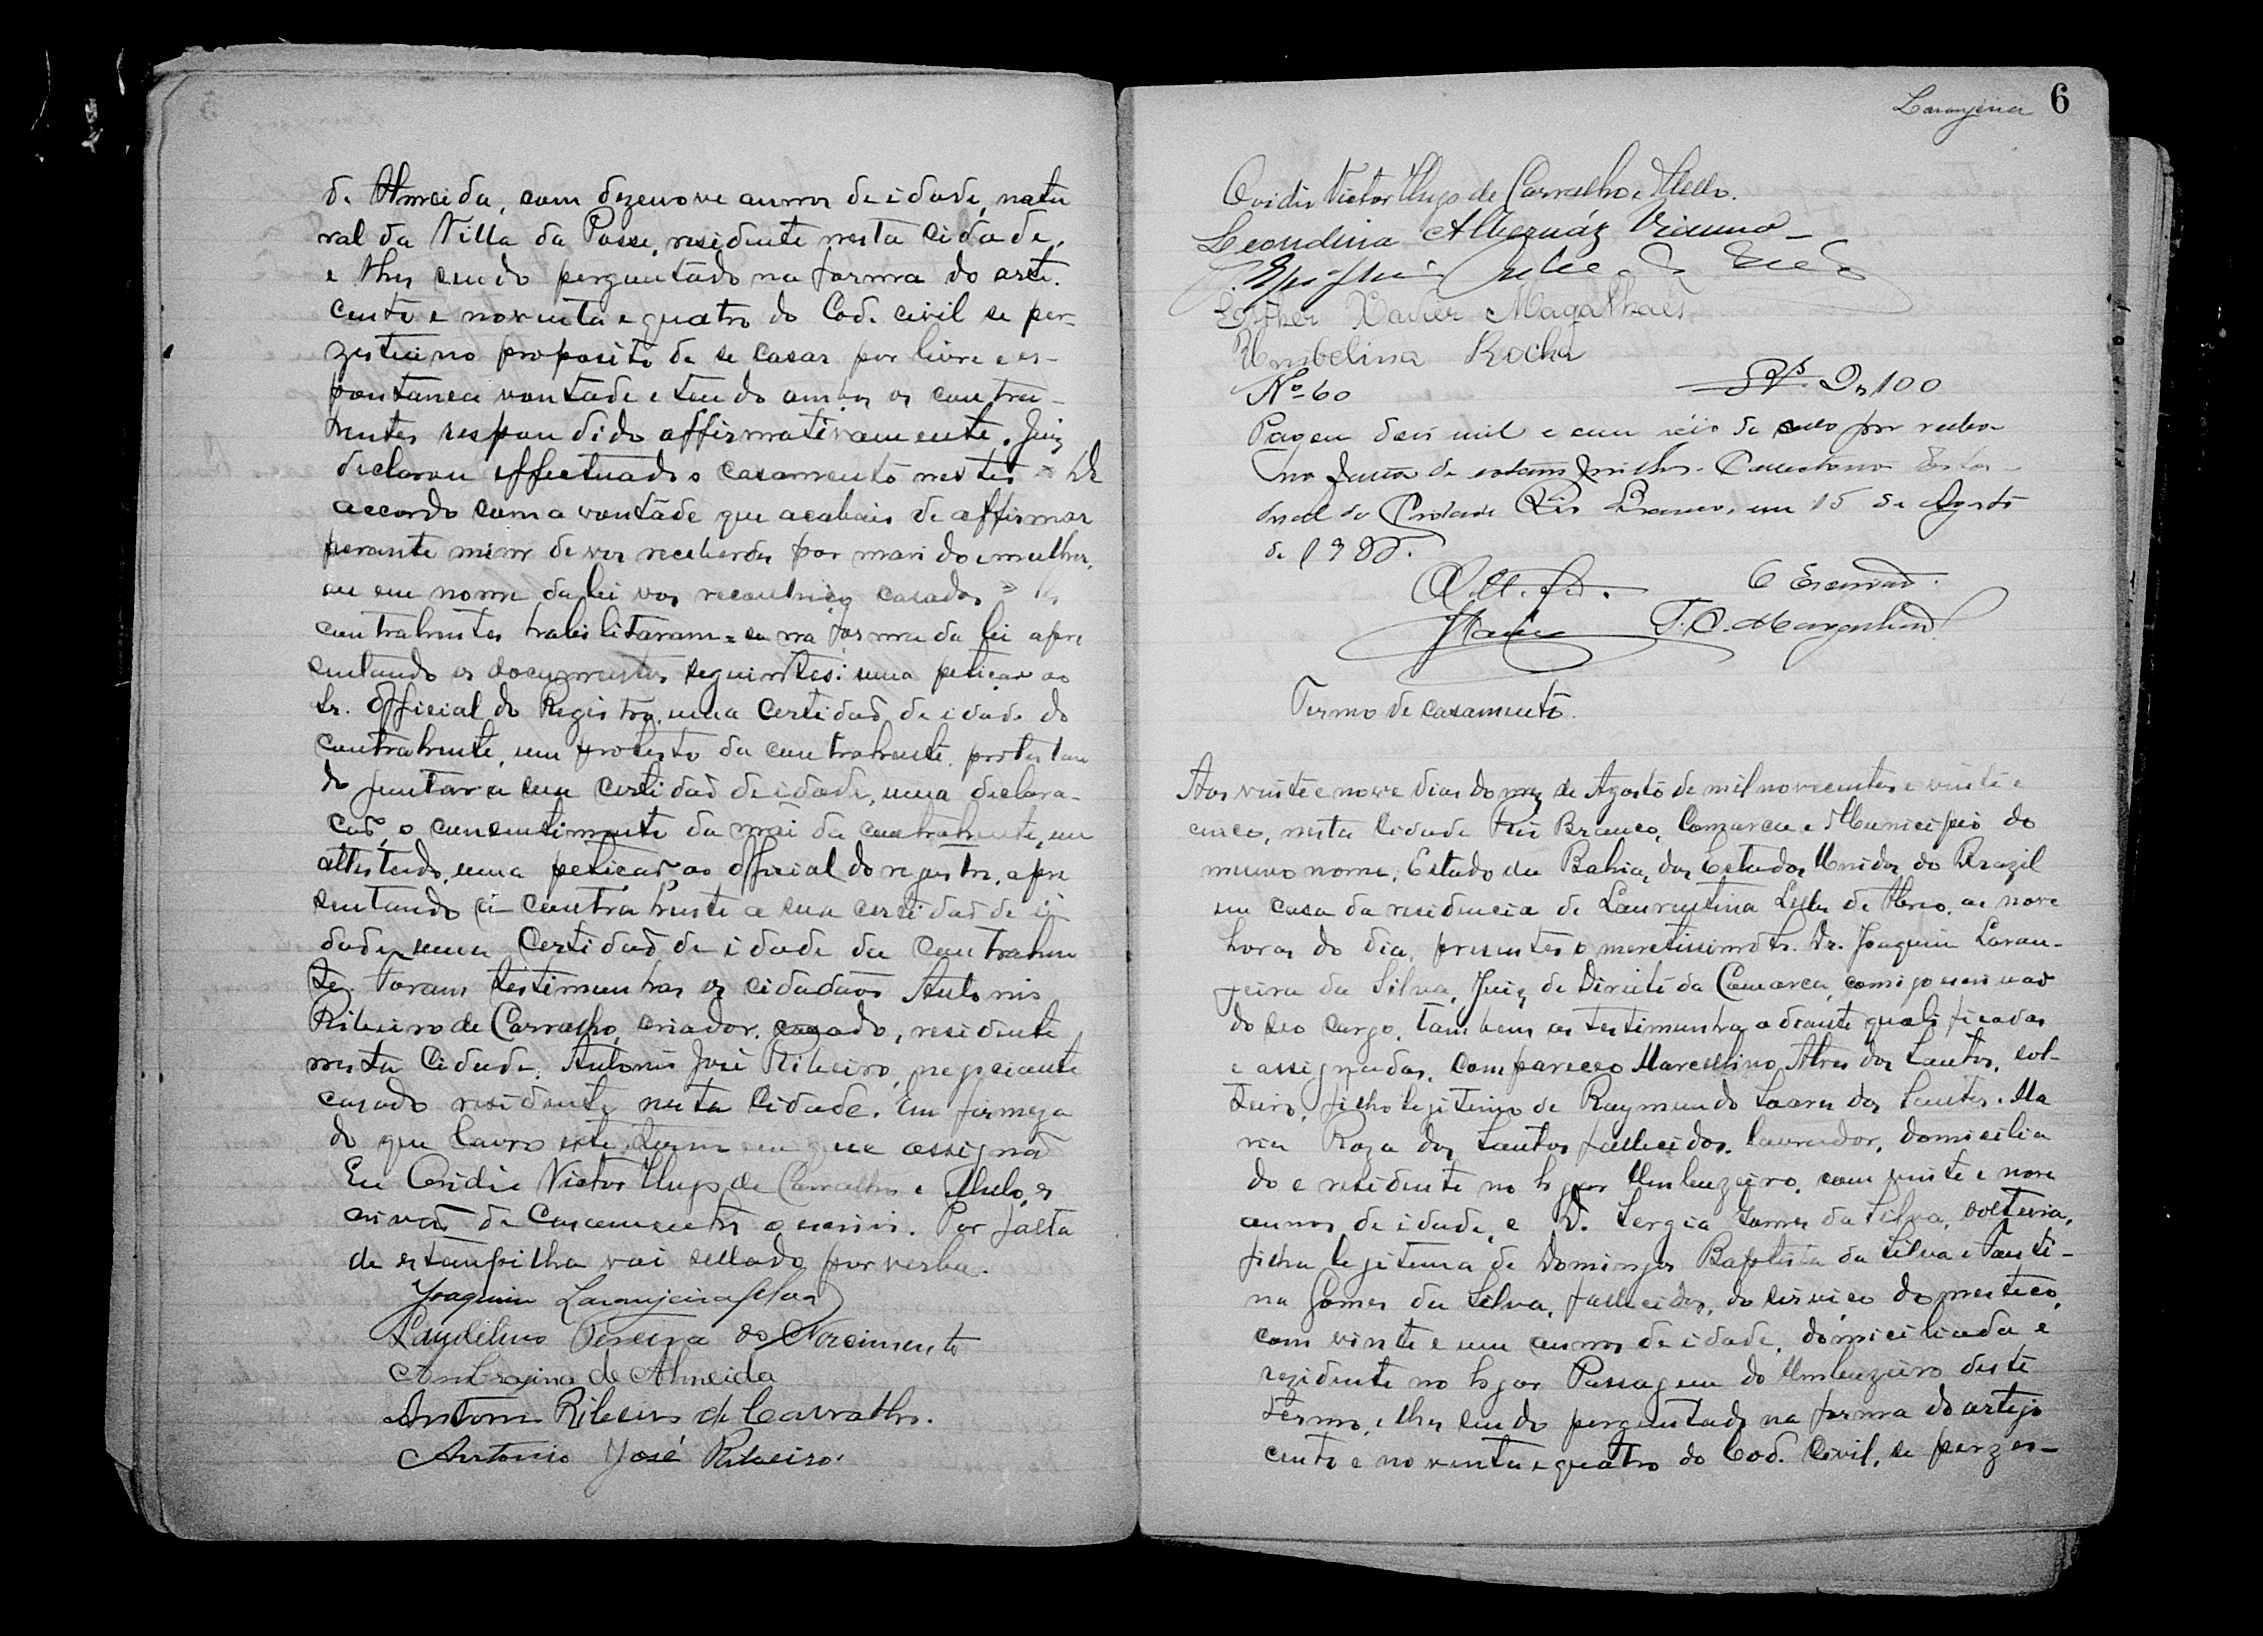 de Almeida, com dezenove annos de idade, natu
ral da Villa da Posse, residente nesta cidade,
e lhes sendo perguntado na forma do art.
cento e noventa e quatro do Cod. civil se per-
zestia no proposito de se casar por livre e es-
pontanea vontade e tendo ambos os contra-
hentes respondido affirmativamente, Juiz
declarou effectuado o casamento nestes De
accordo com a vontade que acabais de affirmar
perante mim de vos receberdes por marido e mulher,
eu em nome da lei vos reconheço casados Os
contrahentes habilitaram-se na forma da lei apre
sentando os documentos seguintes: uma petição ao
Sr. Official do Registro, uma certidaõ de idade do
contrahente, um protesto da contrahente, protestan
do juntar a sua certidaõ de idade, uma declara-
çaõ, o consentimento da mãi da contrahente, um
attestado, uma petiçaõ ao official do registro, apre
sentando a contrahente a sua certidaõ de i-
dade, uma certidaõ de idade da contrahen
te. Foram testimunhas os cidadaõs Antonio
Ribeiro de Carvalho, criador, casado, residente
nesta cidade, Antonio José Ribeiro, negociante
casado residente nesta cidade. Em firmeza
do que lavro este termo em que assignaõ
Eu Ovidio Victor Hugo de Carvalho e Mello, es
crivaõ de casamentos o escrivi. Por falta
de estampilha vai sellado por verba.
Joaquim Laranjeira Silva
Laudelino Pereira do Nascimento
Ambrozina de Almeida
Antonio Ribeiro de Carvalho.
Antonio José Ribeiro.
Laranjeira 6
Ovidio Victor Hugo de Carvalho e Mello.
Leondina Albernáz Vianna
Esther Xavier Magalhaes
Umbelina Rocha
Nº 60 Rs. 2$100
Pagou dois mil e cem réis de sello por verba
na falta de estampilhas. Collectoria Esta-
dual da Cidade Rio Branco, em 15 de Agosto
de 1925.
O Escrivaõ.
Termo de casamento.
Aos vinte e nove dias do mez de Agosto de mil novecentos e vinte e
cinco, nesta cidade Rio Branco, Comarca e Municipio do
mesmo nome, Estado da Bahia, dos Estados Unidos do Brazil
em casa da residencia de Laurentina de as nove
horas do dia, presentes o meretissimo Sr. Dr. Joaquim Laran-
jeira da Silva, Juiz de Direito da Comarca, comigo escrivaõ
do seo cargo, tambem as testimunhas adiante qualificadas
e assignadas, compareceo Marcellino Alves dos Santos, sol-
teiro, filho legitimo de Raymundo Soares dos Santos e Ma
ria Roza dos Santos fallecidos, lavrador, domicilia
do e residente no logar Umbuzeiro, com vinte e nove
annos de idade, e D. Sergia Gomes da Silva, solteira,
filha legitima de Domingos Baptista da Silva e Fausti-
na Gomes da Silva, fallecidos, do serviço domestico,
com vinte e um annos de idade, domiciliada e
rezidente no logar Passagem do Umbuzeiro deste
termo, e lhes sendo perguntado na forma do artigo
cento e noventa e quatro do Cod. Civil, se perzes-